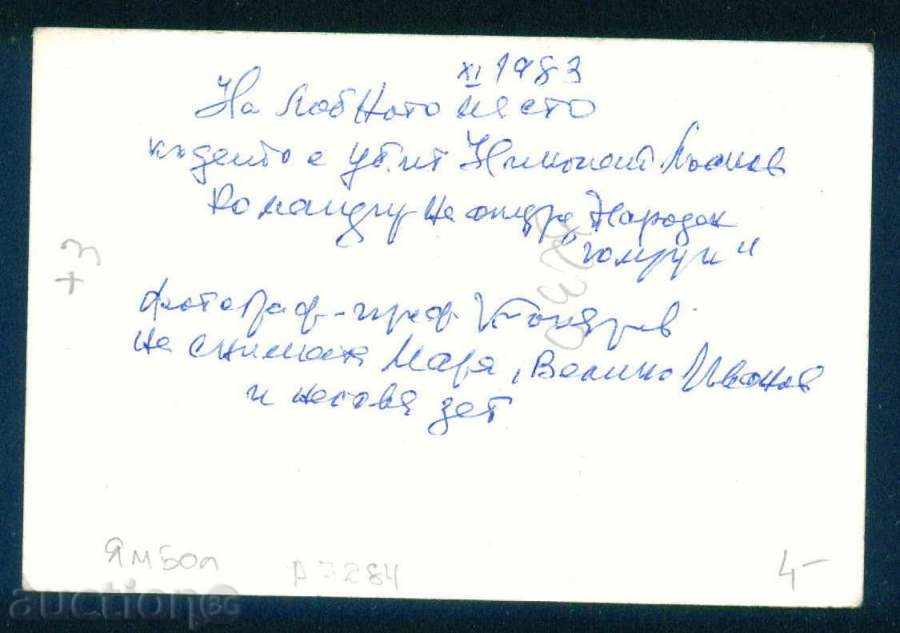 XI 1983
На Лобното място
където е убит Лъсков
Командир на отряд Народен
"юмрук"
фотограф - проф.
на снимката Мара, Велико Иванов
и негова зет
+3
Ямбол
А 7284
4-
auction.bg